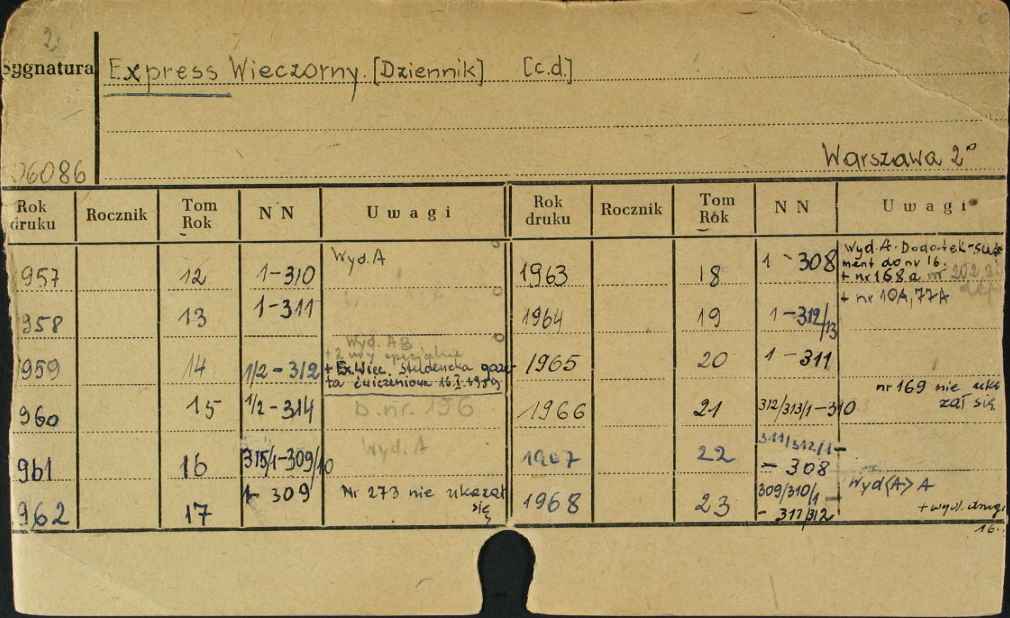 2
Sygnatura Express Wieczorny. [Dziennik] [c.d.]
06086 Warszawa 2°
Rok druku Rocznik Tom Rok NN Uwagi Rok druku Rocznik Tom Rok NN Uwagi
957 12 1-310 Wyd. A
958 13 1-311
959 14 1/2-312 Wyd. AB
+ 2 nry specjalne
+ Ex. Wiec. Studencka gaze-
ta ćwiczeniowa 16.I.1959
960 15 1/2-314 B. nr. 196
961 16 315/1-309/10 Wyd. A
962 17 1-309 Nr 273 nie ukazał
się
1963 18 1-308 Wyd. A. Dodatek-su
ment do nr 16.
+ nr 168a nr 202
+ nr 10A, 77A
1964 19 1-312/13
1965 20 1-311
1966 21 312/313/1-310 nr 169 nie uka
zał się
1967 22 311/312/1-
-308
1968 23 309/310/1-
-311/312 Wyd <A> A
+ wyd. drugi
16.